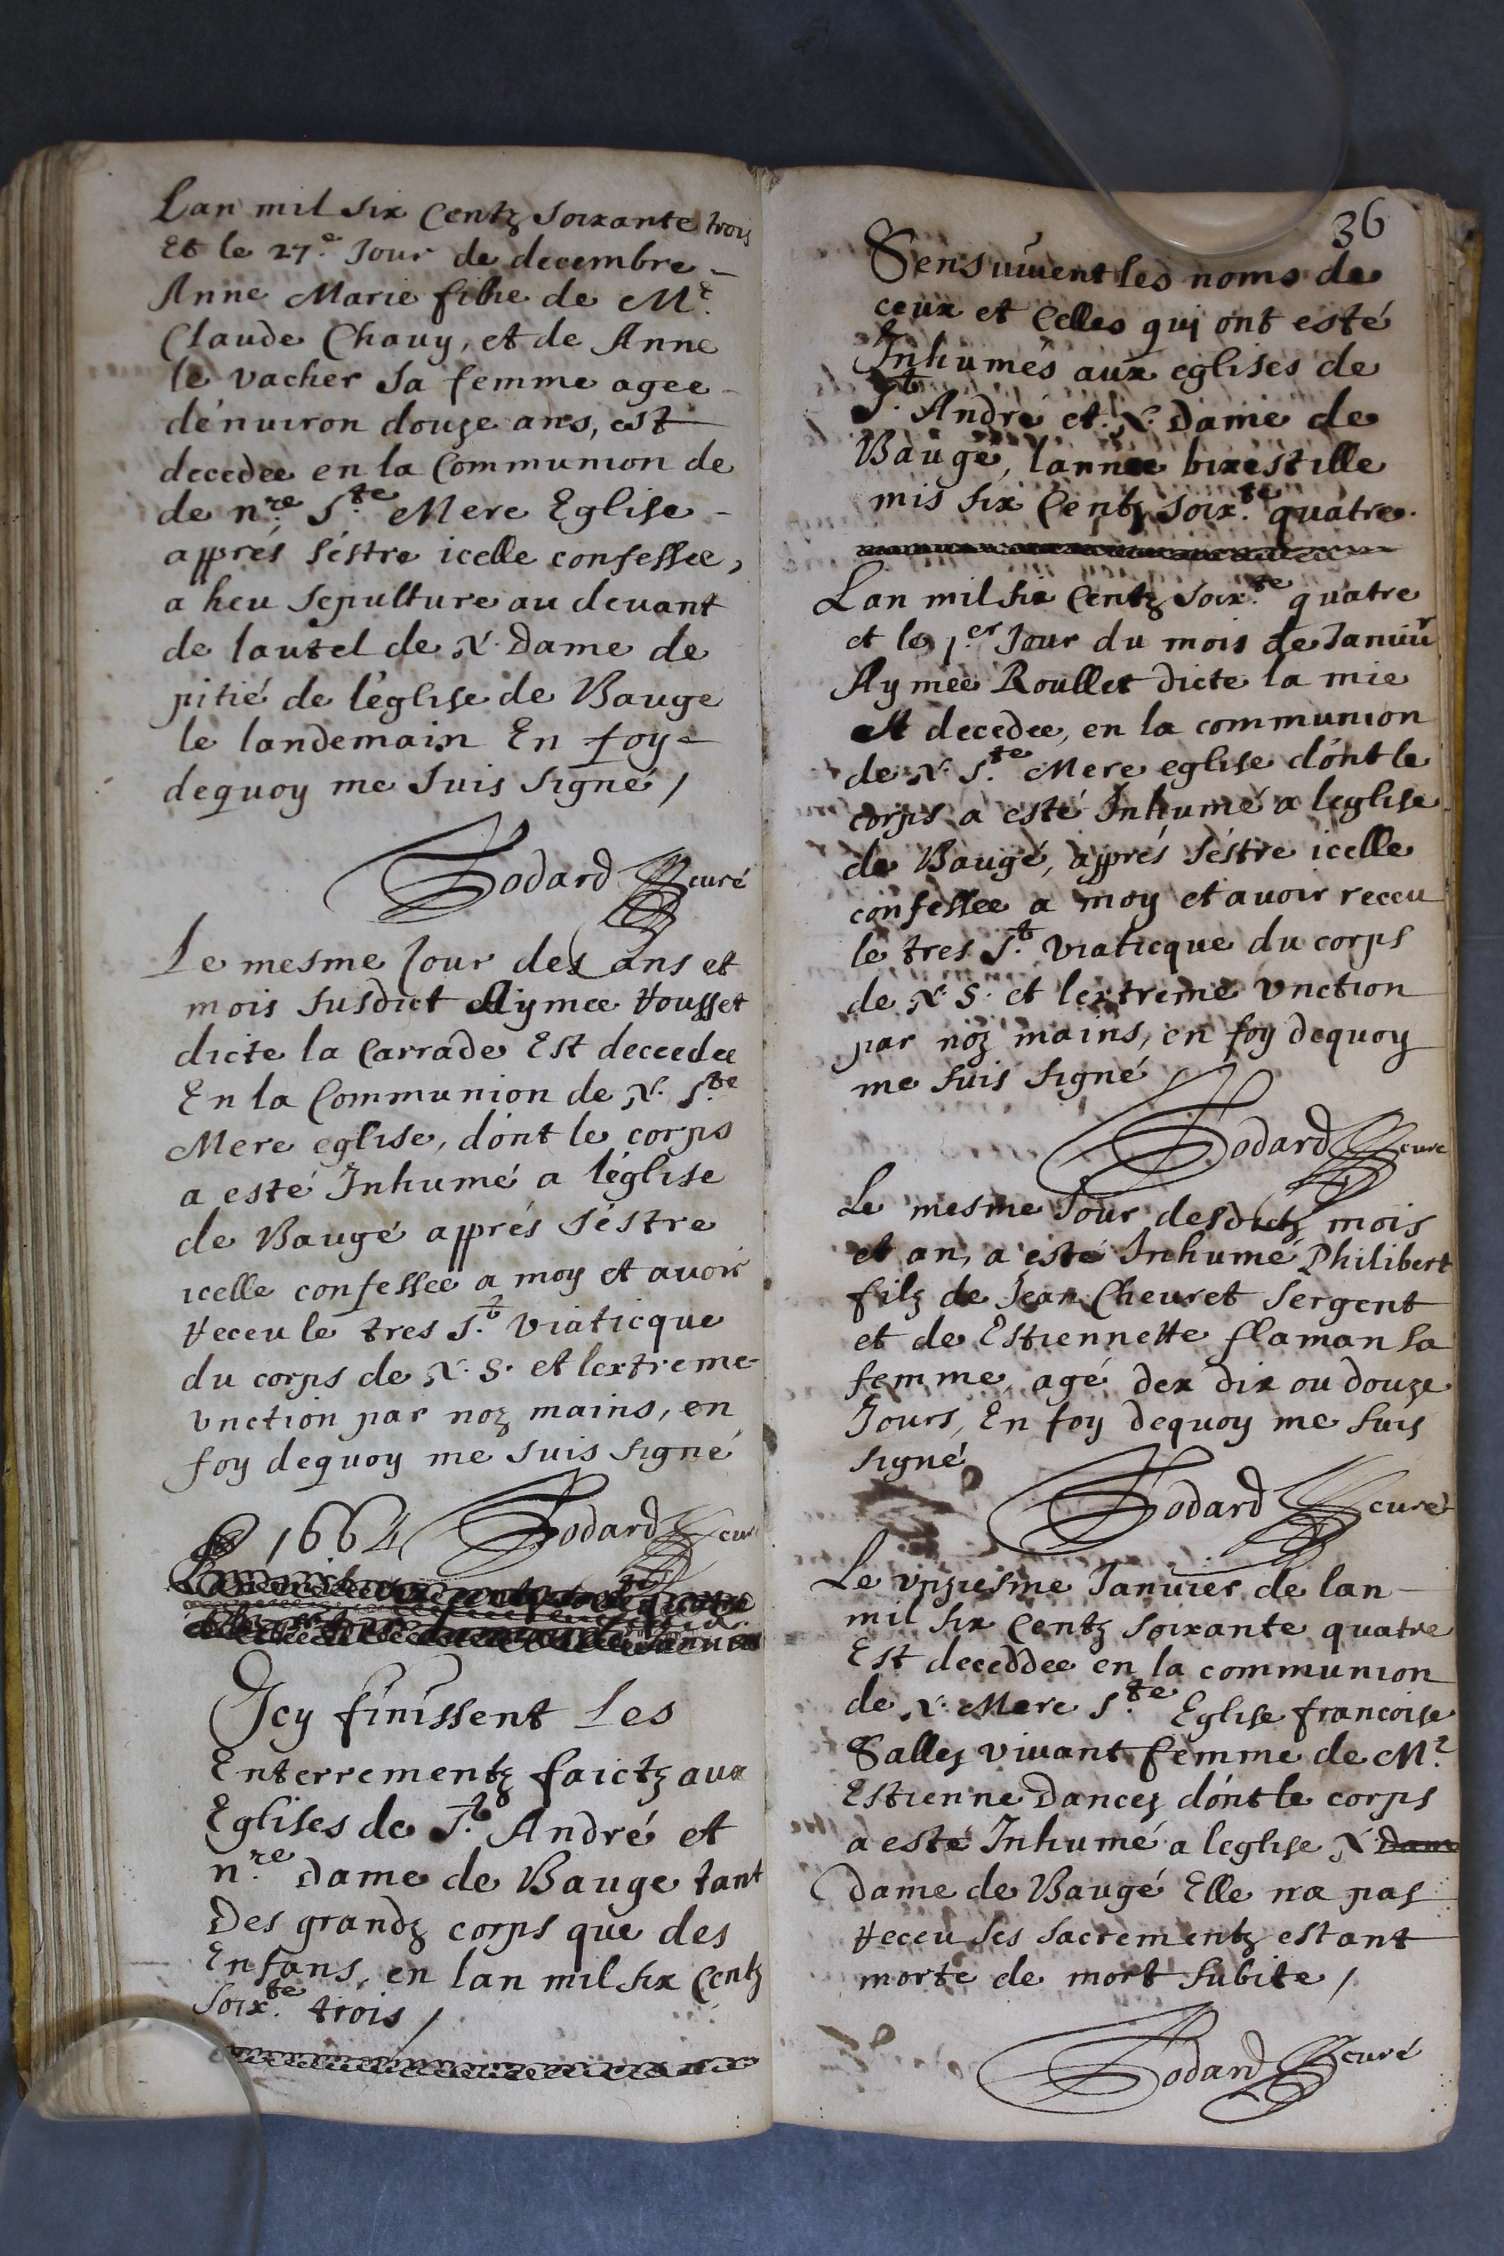 Lan mil six Centz soixante trois
Et le 27.e Jour de decembre –
Anne Marie filhe de Mr.
Claude Chavy, et de Anne
le vacher sa femme agee –
dénviron douze ans, est
decedee en la Communion de
de nre. Ste Mere Eglise –
apprés séstre icelle confessee,
a heu sepulture au devant
de lautel de N. Dame de
pitié de léglise de Bauge
le landemain En foy –
dequoy me suis signé /
curé
Le mesme Jour des ans et
mois susdict Aymee Rousset
dicte la Carrade Est decedee
En la Communion de N. Ste
Mere eglise, dónt le corps
a esté Inhumé a léglise
de Baugé apprés séstre
icelle confessee a moy et avoir
receu le tres St. viaticque
du corps de N. S. et lextreme
unction par noz mains, en
foy dequoy me suis signé
1664
Icy finissent Les
Enterrementz faictz aux
Eglises de St. André et
nre. Dame de Bauge tant
Des grandz corps que des
Enfans, en lan mil six Centz
soixte. trois /
36
Sensuivent les noms de
ceux et Celles qui ont esté
Inhumés aux eglises de
St. André et N. Dame de
Baugé, lannee bixestille
mis six Centz soixte. quatre.
Lan mil six Centz soixte. quatre
et le 1.er Jour du mois de Janvir
Aymee Roullet dicte la mie
est decedee, en la communion
de N. Ste. Mere eglise dónt le
corps a esté Inhumé a leglise
de Baugé, apprés séstre icelle
confessee a moy et avoir receu
le tres St. viaticque du corps
de N. S. et lextreme unction
par nóz mains, en foy dequoy
me suis signé
curé
Le mesme Jour desdictz mois
et an, a esté Inhumé Philibert
filz de Jean Chevret sergent
et de Estiennette flaman sa
femme, agé dex dix ou douze
Jours, En foy dequoy me suis
signé
curé
Le unziesme Janvier de lan –
mil six Centz soixante quatre
Est deceddee en la communion
de N. Mere Ste. Eglise francoise
Sallez vivant femme de Mr.
Estienne Dancez dónt le corps
a esté Inhumé a leglise N. Dam
Dame de Baugé Elle na pas
receu ses sacrementz estant
morte de mort subite /
curé